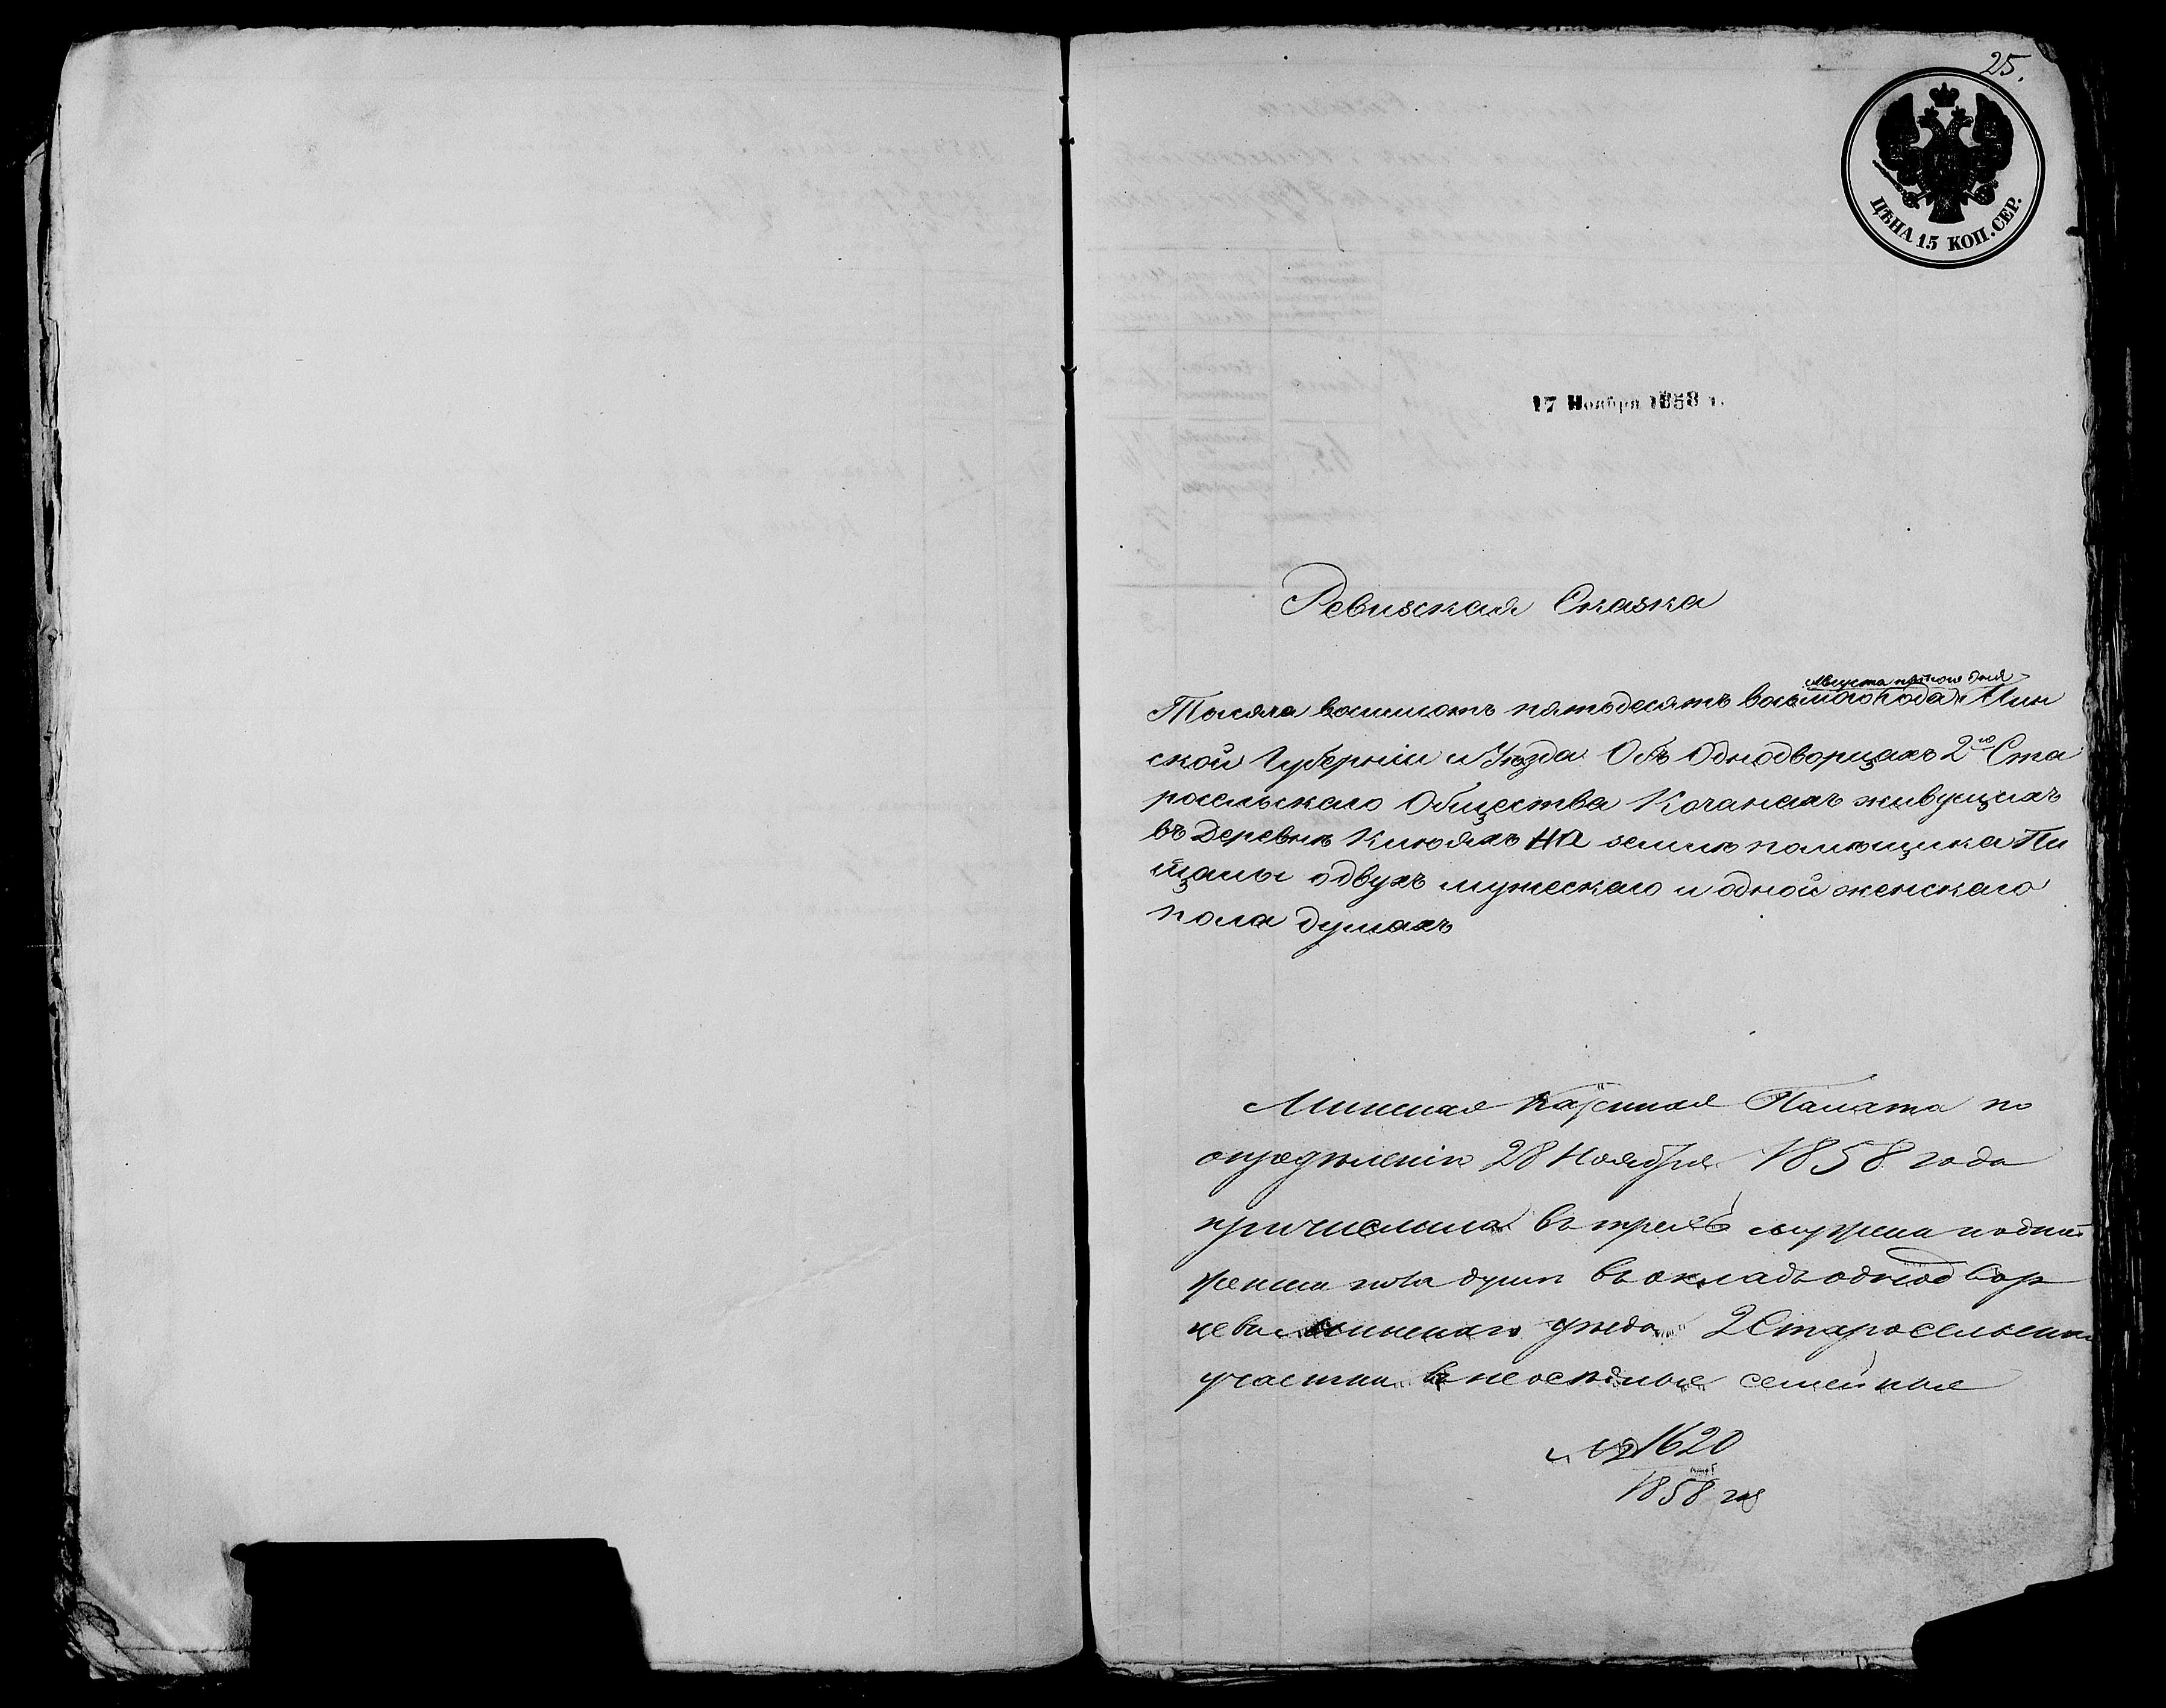 25.
ЦѢНА 15 КОП. СЕР.
17 Ноября 1858 г.
Ревизская Сказка
Августа пятого дня
Тысяча восемьсотъ пятьдесятъ восьмого года Мин
ской Губерніи и Уѣзда Объ Однодворцахъ 2го Ста
росельскаго Общества Кочанахъ живущихъ
въ Деревнѣ на землѣ помѣщика Пи
щалы о двухъ мужескаго и одной женскаго
пола душахъ
Минская Казенная Палата по
опредѣленію 28 Ноября 1858 года
причислила въ мужеска и одной
женска пола душ въ окладъ однодвор
цевъ Минскаго уѣзда 2 Старосельскаго
участка в неосѣдлые семейные
№ 1620
1858 год